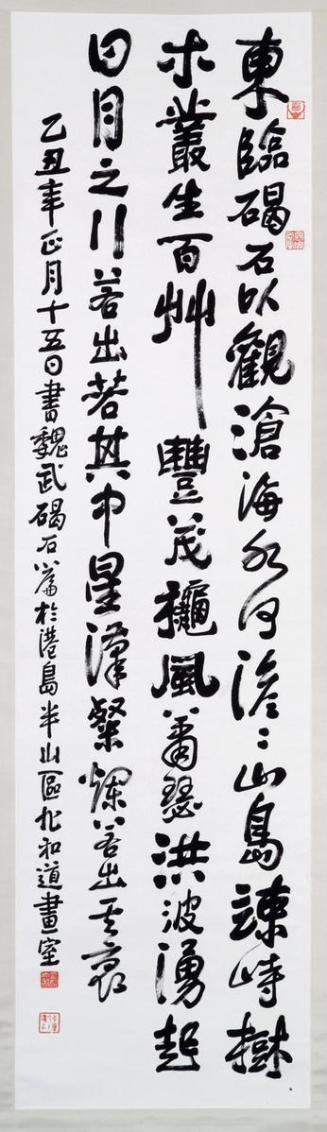 東臨碣石以觀滄海水何澹〻山島竦峙樹
木叢生百艸豐茂龝風蕭瑟洪波湧起
日月之行若出若其中星漢粲爛若出其裏
乙丑年正月十五日書魏武碣石篇於港島半山區旭和道畫室